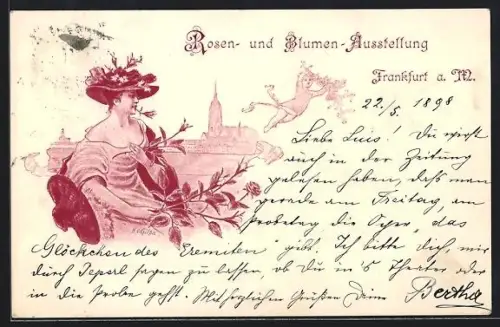 Rosen- und Blumen-Ausstellung
Frankfurt a. M.
22./5. 1898
Liebe Luis! Du wirst
auch in der Zeitung
gelesen haben, daß man
gerade am Freitag, am
Probetag die Oper „das
Glöckchen des Eremiten" gibt. Ich bitte dich mir
durch sagen zu lassen, ob Du in's Theater oder
in die Probe gehst. Mit herzlichen Grüßen Deine Bertha